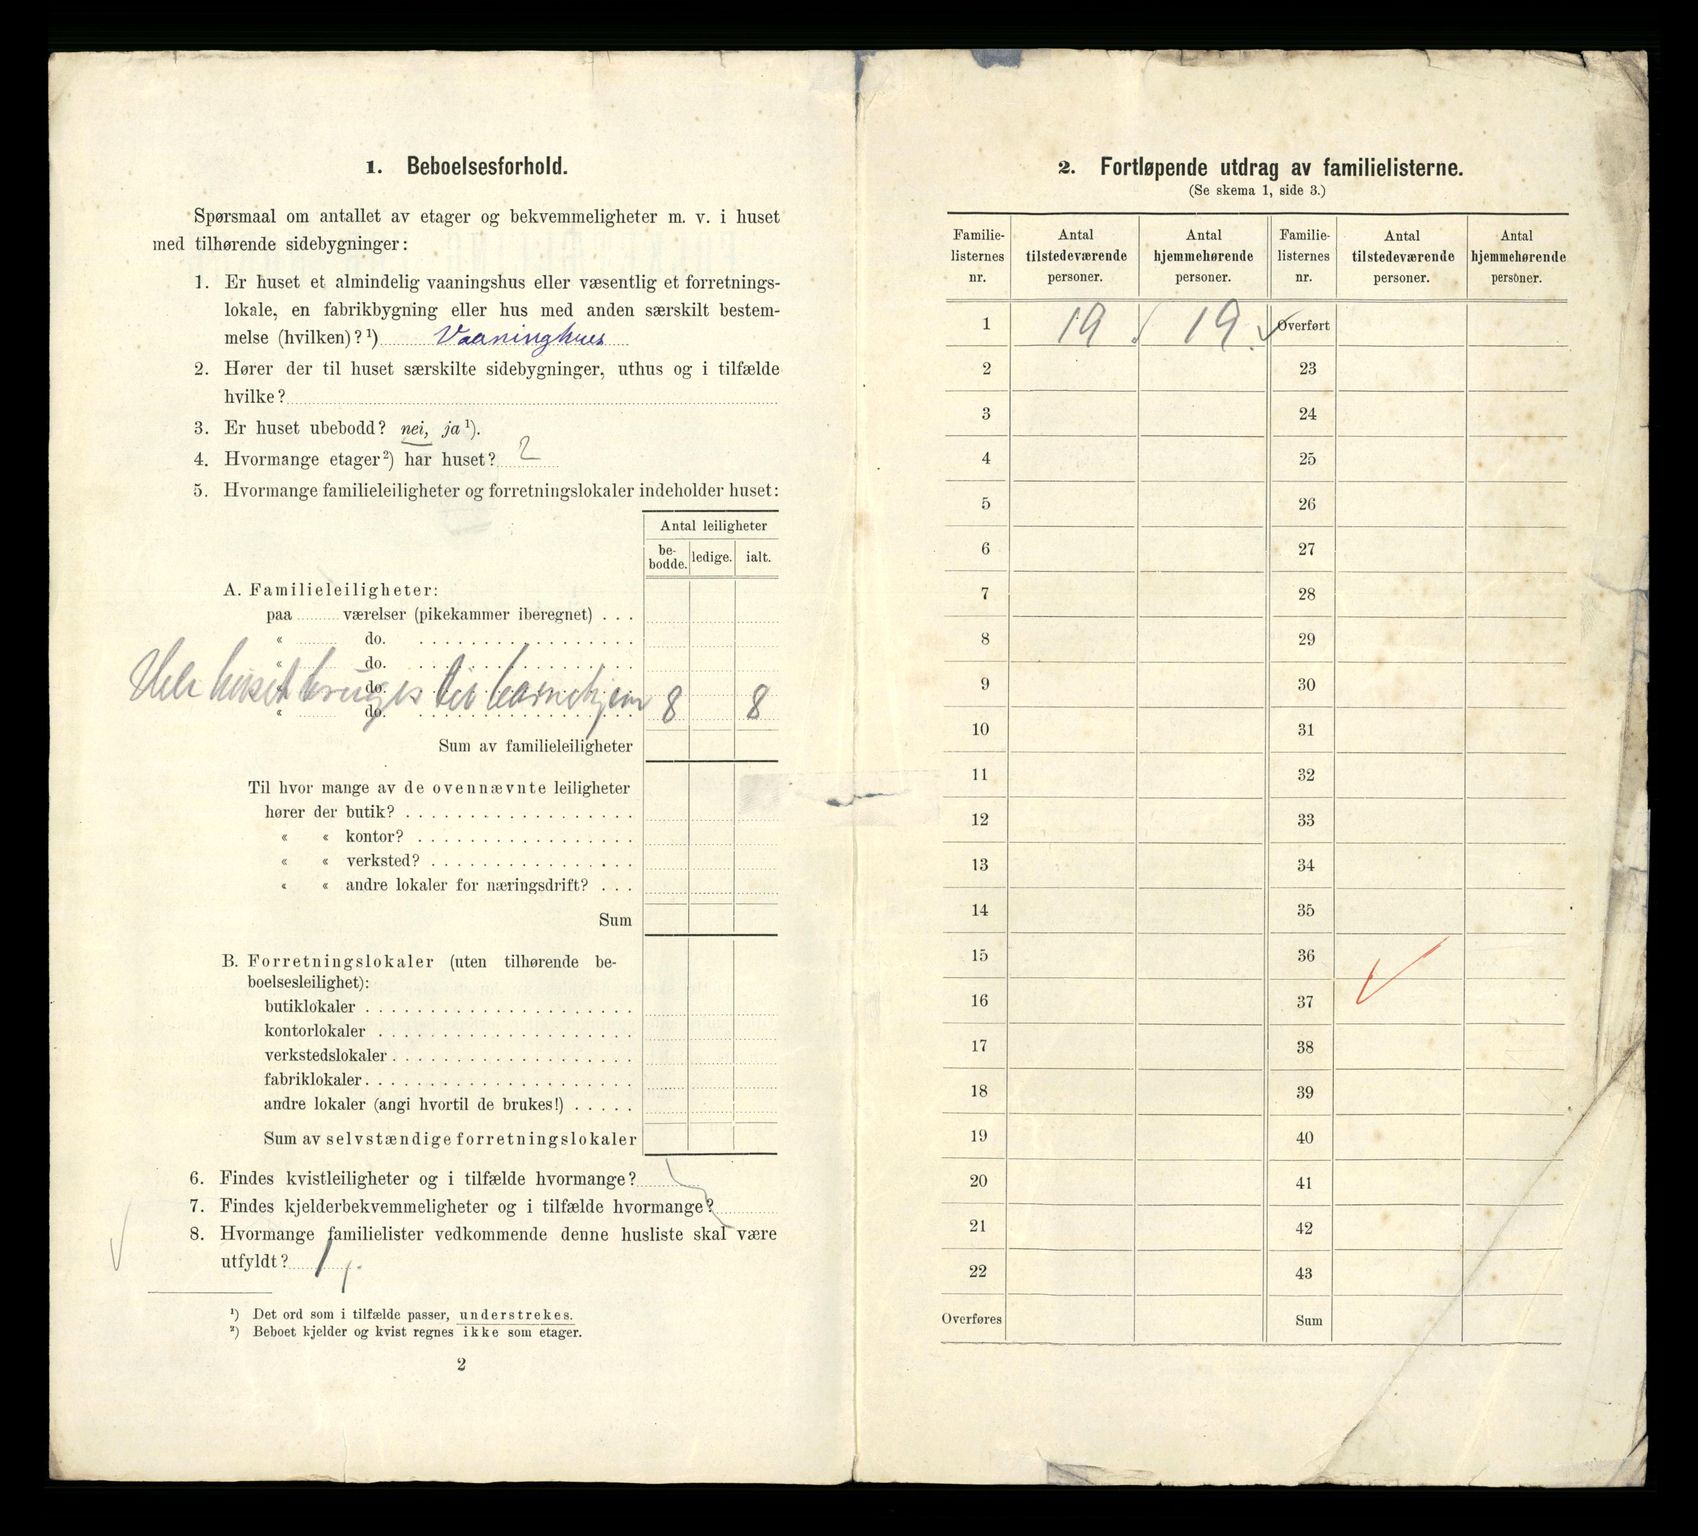 1. Beboelsesforhold.
Spørsmaal om antallet av etager og bekvemmeligheter m. v. i huset
med tilhørende sidebygninger:
1. Er huset et almindelig vaaningshus eller væsentlig et forretnings-
lokale, en fabrikbygning eller hus med anden særskilt bestem-
melse (hvilken)?¹) Vaaninghus
2. Hører der til huset særskilte sidebygninger, uthus og i tilfælde
hvilke?
3. Er huset ubebodd? nei, ja¹).
4. Hvormange etager²) har huset? 2
5. Hvormange familieleiligheter og forretningslokaler indeholder huset:
Antal leiligheter
be-
bodde. ledige. ialt.
A. Familieleiligheter:
paa værelser (pikekammer iberegnet) . . .
« do.
« do.
« do.
Hele huset bruges til barnehjem 8 8
« do.
Sum av familieleiligheter
Til hvor mange av de ovennævnte leiligheter
hører der butik?
« « kontor?
« « verksted?
« « andre lokaler for næringsdrift? . . .
Sum
B. Forretningslokaler (uten tilhørende be-
boelsesleilighet):
butiklokaler
kontorlokaler
verkstedslokaler
fabriklokaler
andre lokaler (angi hvortil de brukes!)
Sum av selvstændige forretningslokaler
6. Findes kvistleiligheter og i tilfælde hvormange?
7. Findes kjelderbekvemmeligheter og i tilfælde hvormange?
8. Hvormange familielister vedkommende denne husliste skal være
utfyldt? 1
¹) Det ord som i tilfælde passer, understrekes.
²) Beboet kjelder og kvist regnes ikke som etager.
2
2. Fortløpende utdrag av familielisterne.
(Se skema 1, side 3.)
Familie- Antal Antal Familie- Antal Antal
listernes tilstedeværende hjemmehørende listernes tilstedeværende hjemmehørende
nr. personer. personer. nr. personer. personer.
1 19 19 Overført
2 23
3 24
4 25
5 26
6 27
7 28
8 29
9 30
10 31
11 32
12 33
13 34
14 35
15 36
16 37
17 38
18 39
19 40
20 41
21 42
22 43
Overføres Sum